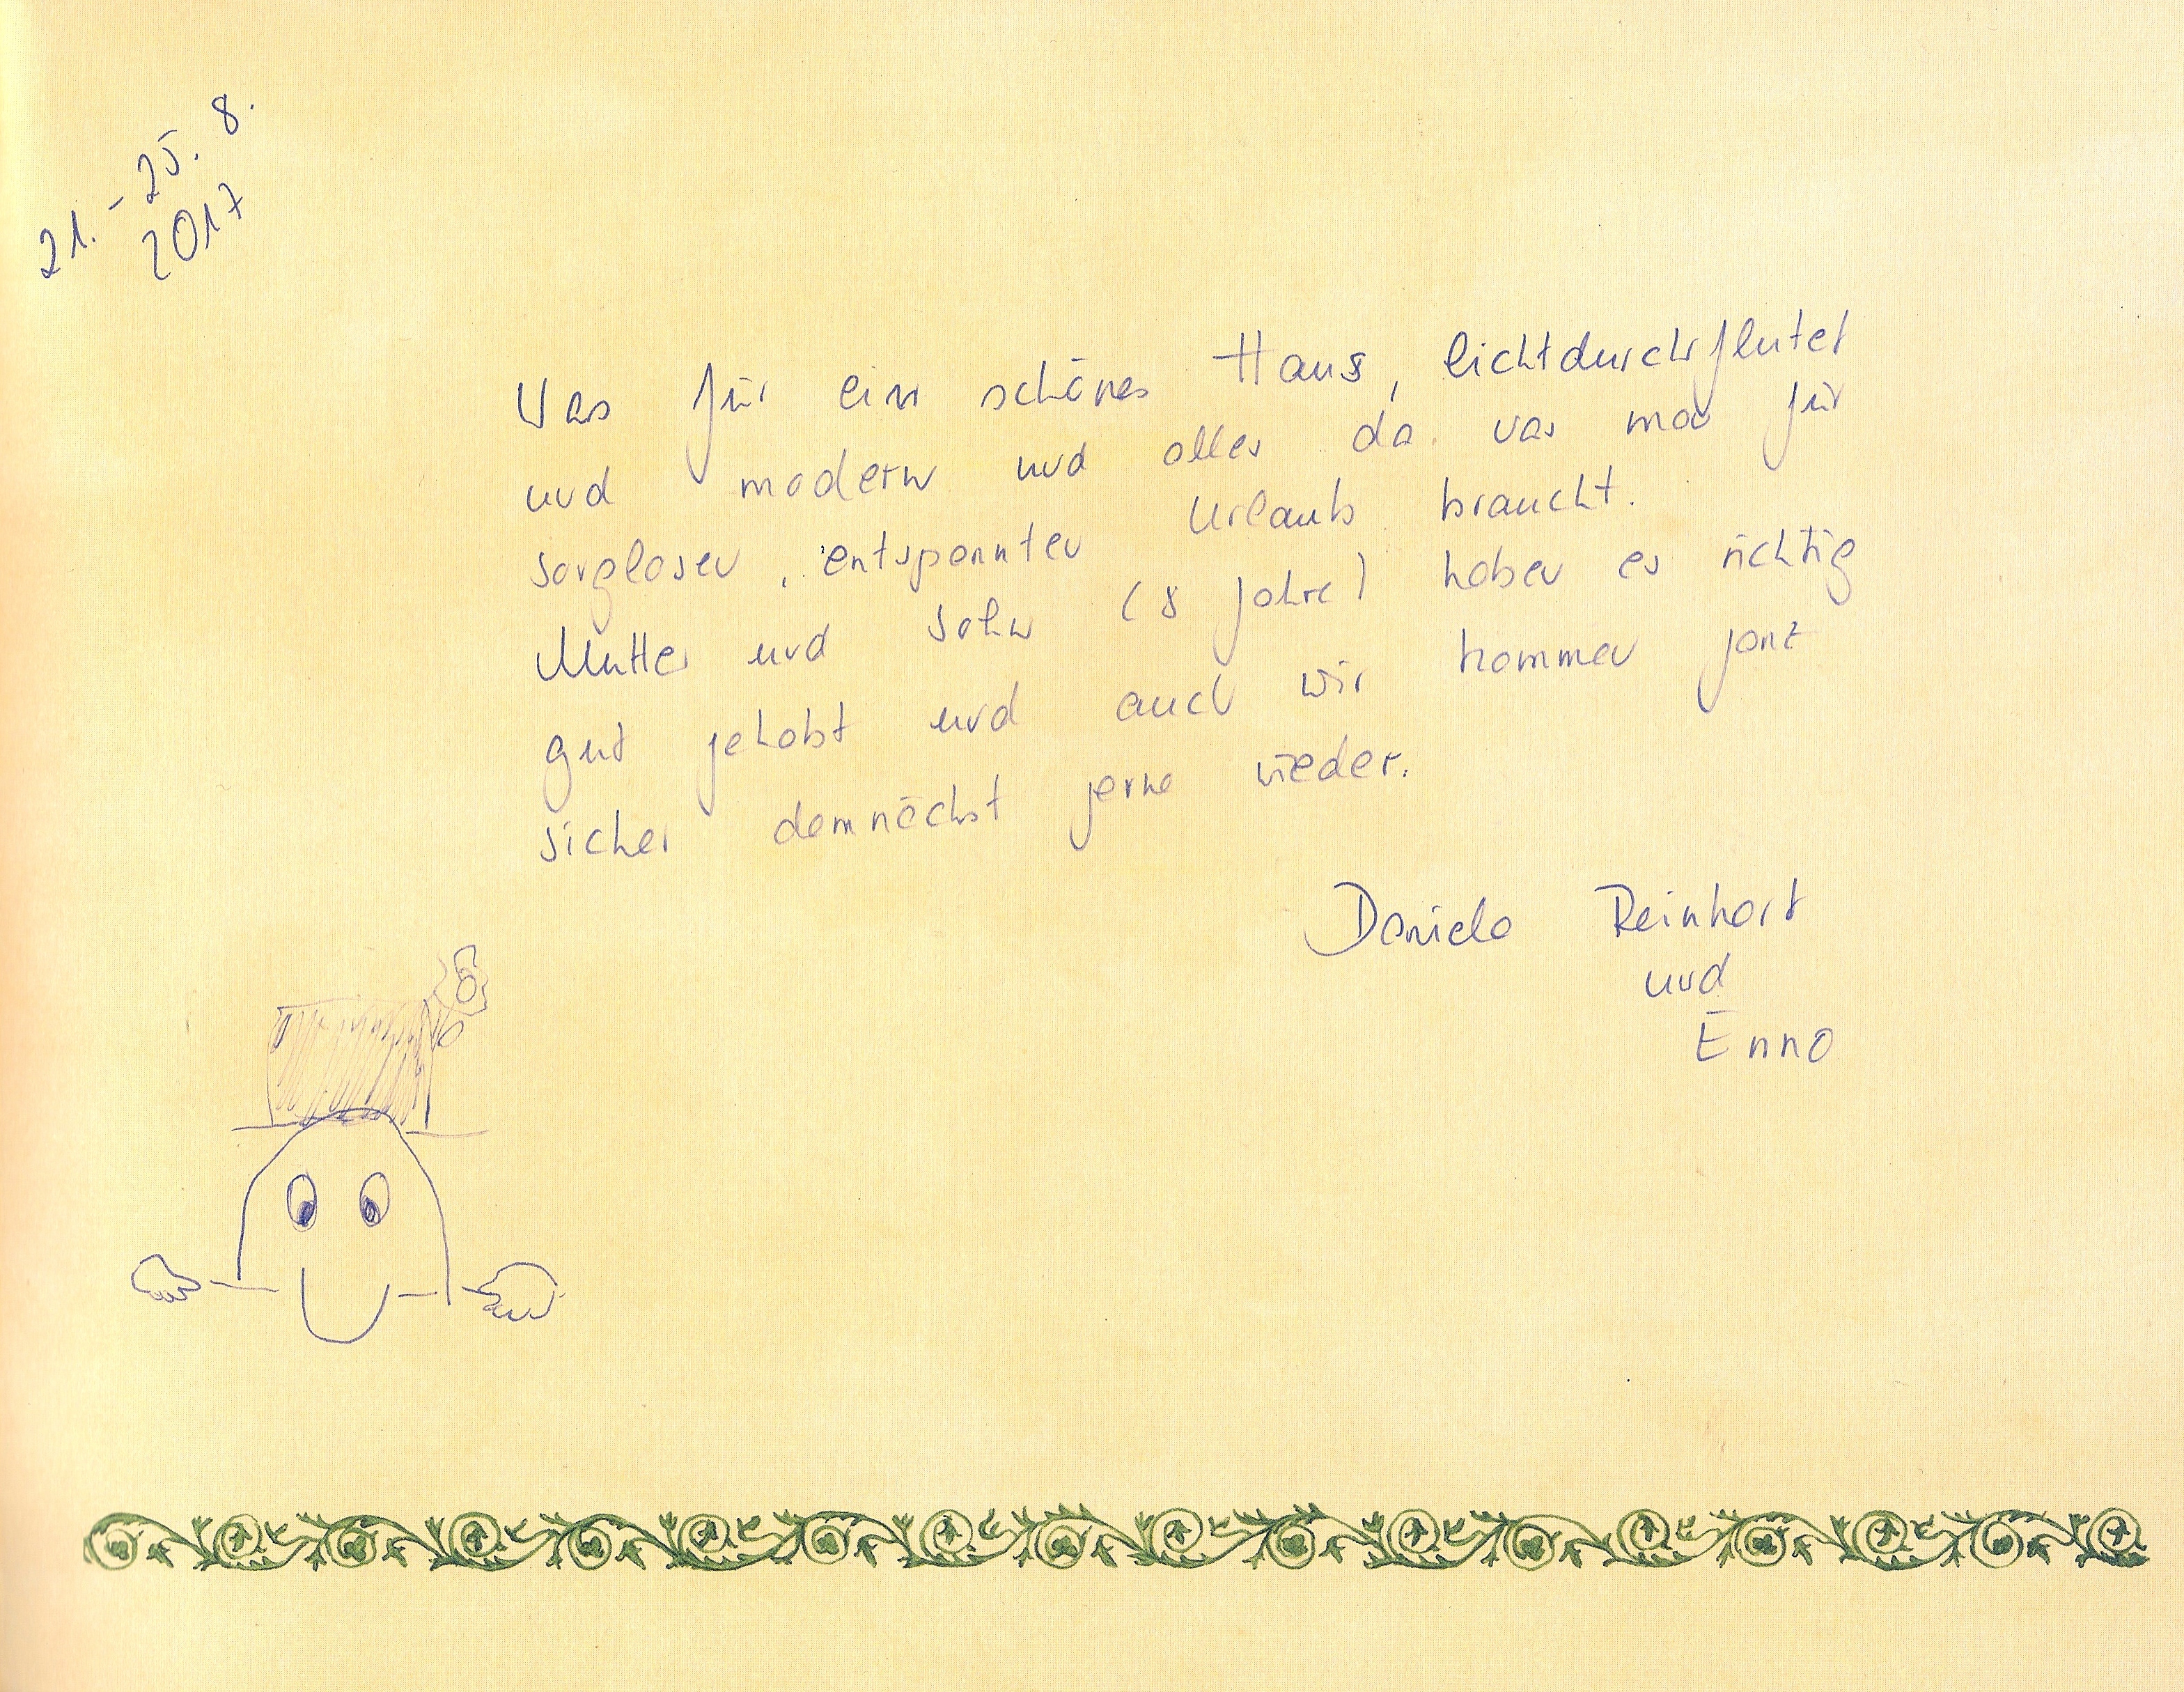 21. - 25. 8.
2017
Was für ein schönes Haus, lichtdurchflutet
und modern und alles da was man für
sorglosen, entspannten Urlaub braucht.
Mutter und Sohn (8 Jahre) haben es richtig
gut gehabt und auch wir kommen ganz
sicher demnächst gerne wieder.
Daniela Reinhart
und
Enno